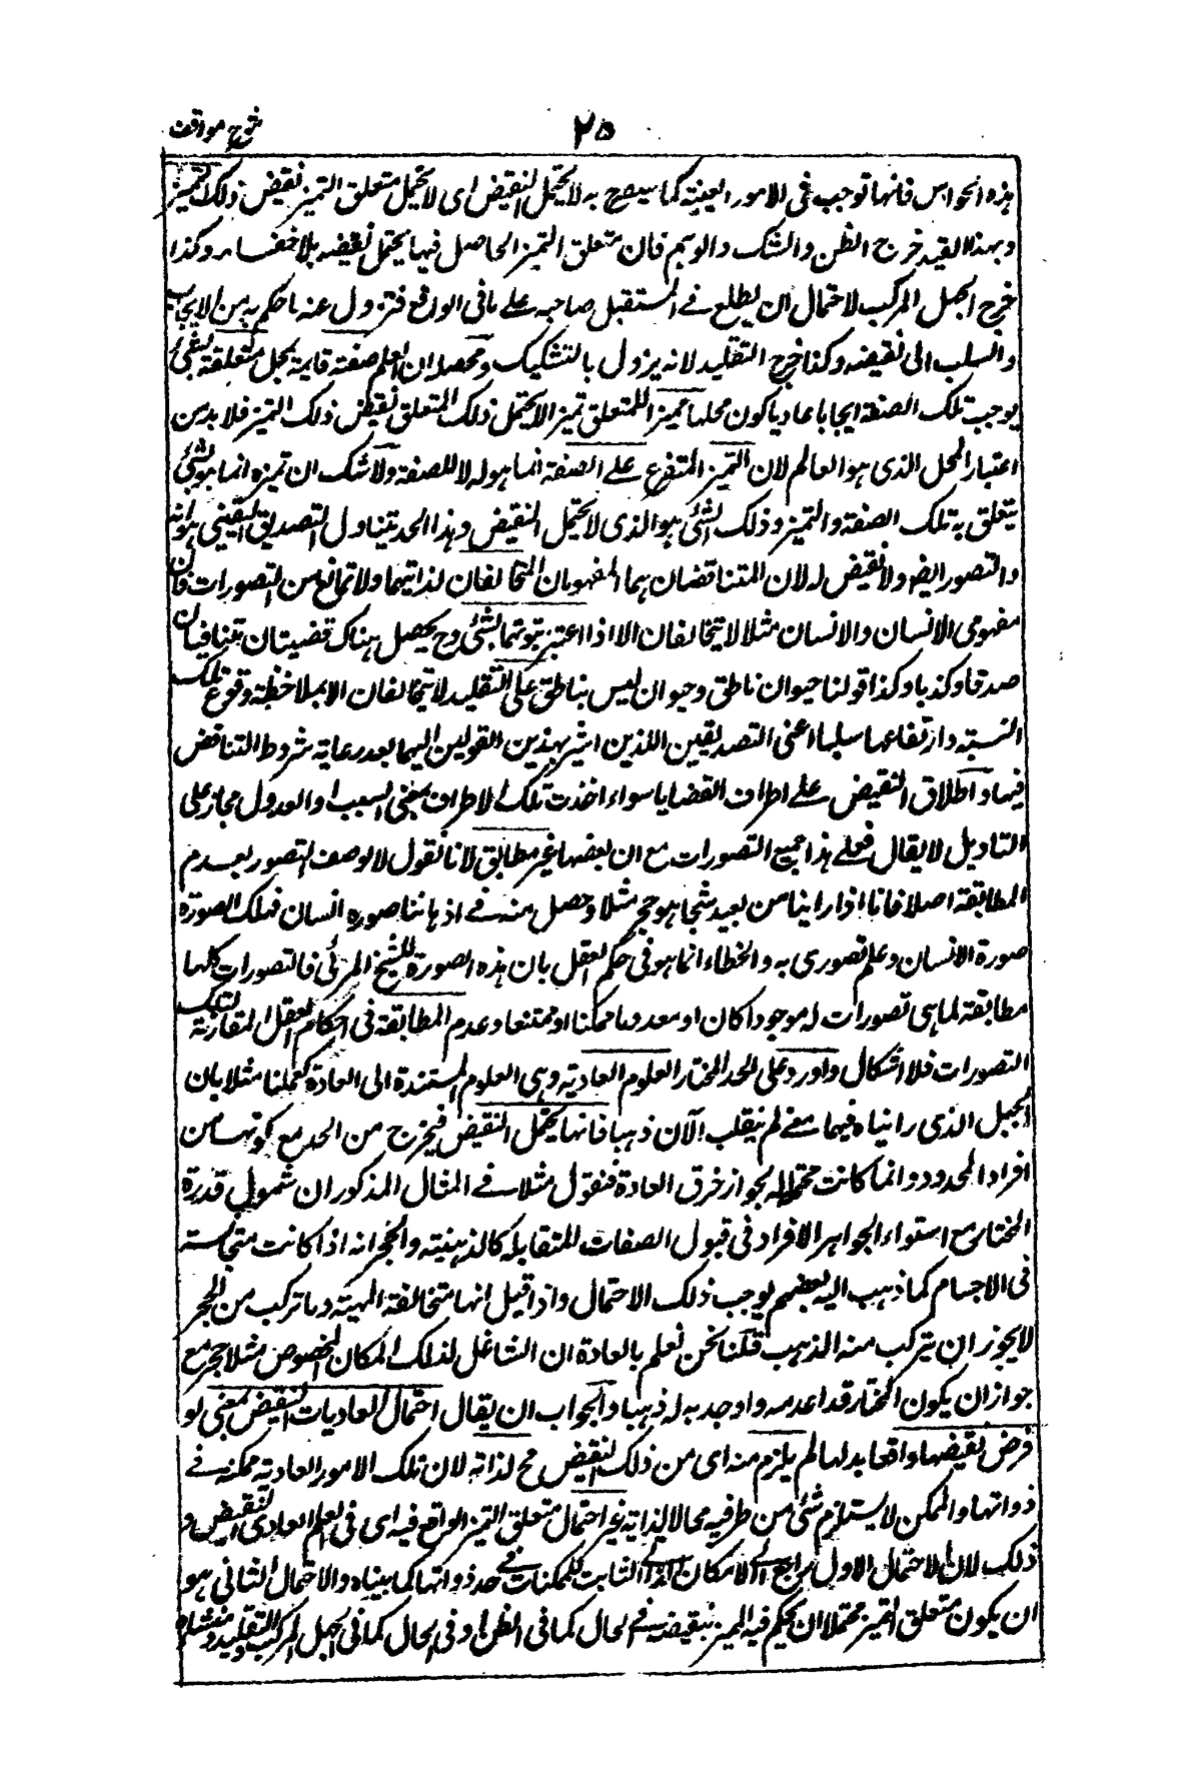 شرح مواقف
٢٥
هذه الحواس فانها توجب فى الامور العينية كما سيصرح به لا يحتمل النقيض اى لا يحتمل متعلق التميز نقيض ذلك التميز
وبهذا القيد خرج الظن والشك والوهم فان متعلق التميز الحاصل فيها يحتمل نقيضه بلا خفاء وكذا
خرج الجهل المركب لاحتمال ان يطلع فى المستقبل صاحبه على ما فى الواقع فتزول عنه ما حكم به من الايجاب
والسلب الى نقيضه وكذا خرج التقليد لانه يزول بالتشكيك ومحصله ان العلم صفة قايمة بمحل متعلقة بشئ
يوجب تلك الصفة ايجابا عاديا كون محلها مميزا للمتعلق تميزا لا يحتمل ذلك المتعلق نقيض ذلك التميز فلا بد من
اعتبار المحل الذى هو العالم لان التميز المتفرع على الصفة انما هو له لا للصفة ولا شك ان تميزه انما هو لشئ
يتعلق به تلك الصفة والتميز وذلك الشئ هو الذى لا يحتمل النقيض وهذا الحد يتناول التصديق اليقينى
والتصور ايضا ولا نقيض له لان المتناقضان هما المفهومان المتخالفان لذاتيهما ولا تمانع من التصورات فان
مفهومى الانسان واللانسان مثلا لا يتخالفان الا اذا اعتبر ثبوتهما لشئ وح يحصل هناك قضيتان تتنافيان
صدقا وكذبا وكذا قولنا حيوان ناطق وحيوان ليس بناطق على التقليد لا يتخالفان الا بملاحظة وقوع تلك
النسبة وارتفاعها سلبا اعنى التصديقين اللذين اشير بهذين القولين اليهما بعد رعاية شروط التناقض
فيهما واطلاق النقيض على اطراف القضايا سواء اخذت تلك الاطراف بمعنى السلب او العدول مجاز على
التاويل لا يقال فعلى هذا جميع التصورات مع ان بعضها غير مطابق لانا نقول لا يوصف التصور بعدم
المطابقة اصلا فانا اذا راينا من بعيد شبحا هو حجر مثلا وحصل منه فى اذهاننا صورة انسان فتلك الصورة
صورة الانسان وعلم تصورى به والخطاء انما هو فى حكم العقل بان هذه الصورة للشبح المرئى فالتصورات كلها
مطابقة لما هى تصورات له موجودا كان او معدوما ممكنا او ممتنعا وعدم المطابقة فى احكام العقل المقارنة لتلك
التصورات فلا اشكال واورد على الحد المختار العلوم العادية وهى العلوم المستندة الى العادة كعلمنا مثلا بان
الجبل الذى رايناه فيما مضى لم ينقلب الآن ذهبا فانها يحتمل النقيض فيخرج من الحد مع كونها من
افراد المحدود وانما كانت محتملة له بجواز خرق العادة فنقول مثلا فى المثال المذكور ان شمول قدرة
المختار مع استواء الجواهر الافراد فى قبول الصفات المتقابلة كالذهبية والحجرية اذا كانت متجانسة
فى الاجسام كما ذهب اليه بعضهم يوجب ذلك الاحتمال واذا قيل انها متخالفة المهية وما تركب من الحجر
لا يجوز ان يتركب منه الذهب قلنا نحن نعلم بالعادة ان الشاغل لذلك المكان المخصوص مثلا حجر مع
جواز ان يكون المختار قد اعدمه واوجد بدله ذهبا والجواب ان يقال احتمال العاديات النقيض بمعنى لو
فرض نقيضها واقعا بدلها لم يلزم منه اى من ذلك النقيض مح لذاته لان تلك الامور العادية ممكنة فى
ذواتها والممكن لا يستلزم شئ من طرفيه محالا لذاته غير احتمال متعلق التميز الواقع فيه اى فى العلم العادى النقيض و
ذلك لان الاحتمال الاول راجع الى الامكان الذاتى الثابت للممكنات فى حد ذواتها كما بيناه والاحتمال الثانى هو
ان يكون متعلق التميز محتملا ان يحكم فيه المميز بنقيضه فى الحال كما فى الظن او فى الحال كما فى الجهل المركب والتقليد ومنشاه